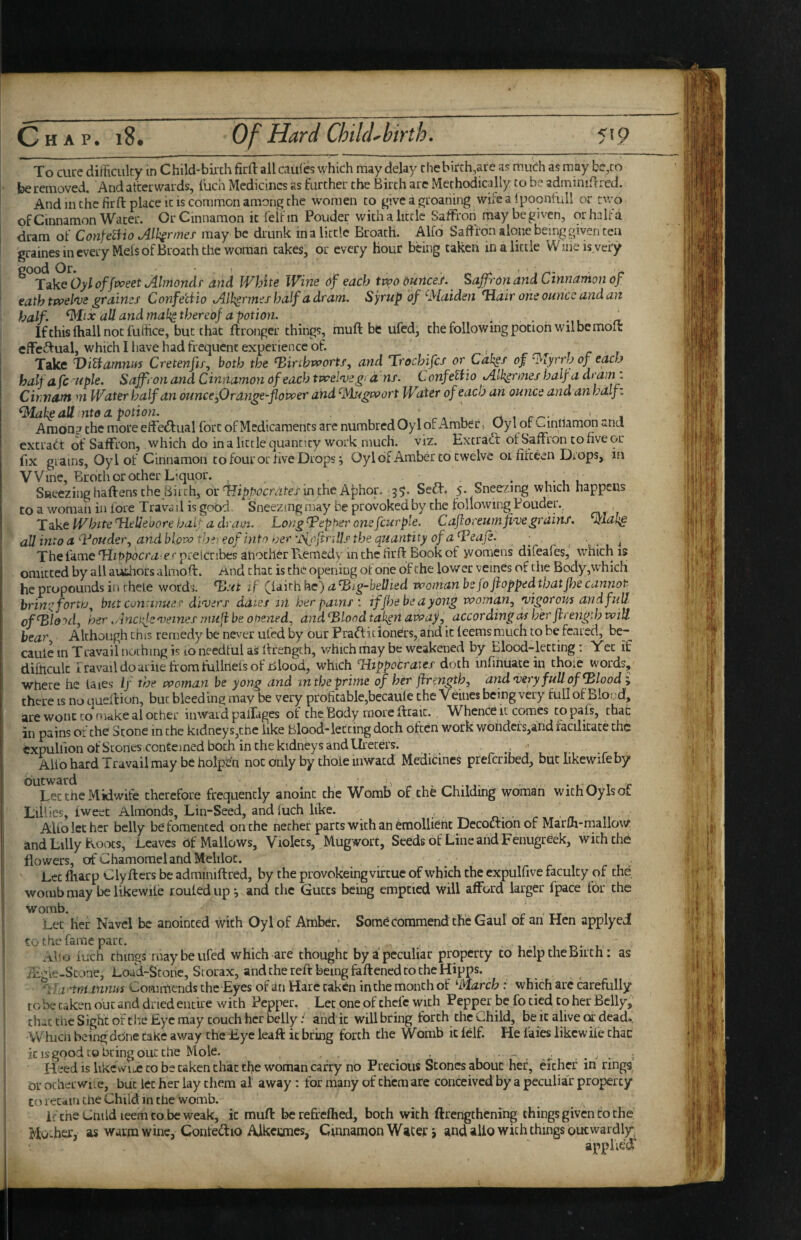 CHAP. 18. Of Hard Child-birth. 519
To cure difficulty in Child-birth first all causes which may delay the birth,are as much as may be,to
be removed. And afterwards, such Medicines as further the Birth are Methodically to be administred.
And in the first place it is common among the women to give a groaning wife a spoonfull or two
of Cinnamon Water. Or Cinnamon it self in Pouder with a little Saffron may be given, or half a
dram of Confectio Alkermes may be drunk in a little Broath. Also Saffron alone being given ten
graines in every Mess of Broath the woman takes, or every hour being taken in a little Wine is very
good Or.
Take Oyl of sweet Almonds and White Wine of each two ounces. Saffron and Cinnamon of
eath twelve graines Confectio Alkermes half a dram. Syrup of Maiden Hair one ounce and an
half. Mix all and make thereof a potion.
If this shall not suffice, but that stronger things, must be used, the following potion wil be most
effectual, which I have had frequent experience of.
Take Dictamnus Cretensis, both the Birthworts, and Trochiscs or Cakes of Myrrh of each
half a scruple. Saffron and Cinnamon of each twelve gra ns. Confectio Alkermes half a dram:
Cinnam n Water half an ounce;Orange-flower and Mugwort Water of each an ounce and an half:
Make all into a potion.
Among the more effectual sort of Medicaments are numbred Oyl of Amber, Oyl of Cinnamon and
extract of Saffron, which do in a little quantity work much. viz. Extract of Saffron to five or
six grains, Oyl of Cinnamon to four or five Drops; Oyl of Amber to twelve or fifteen Drops, in
VVine, Broth or other Liquor.
Sneezing hastens the Birth, or Hippocrates in the Aphor. 35. Sect. 5. Sneezing which happens
to a woman in sore Travail is good. Sneezing may be provoked by the following Pouder.
Take White Hellebore half a dram. Long Pepper one scruple. Castoreum five grains. Make
all into a Pouder, and blow thereof into her Nostrills the quantity of a Pease.
The same Hippocrates prescribes another Remedy in the first Book of womens diseases, which is
omitted by all authors almost. And that is the opening of one of the lower veines of the Body,which
he propounds in these words. But if (saith he) a Big-bellied woman be so stopped that she cannot
bring forth, but continues divers daies in her pains: if she be a yong woman, vigorous and full
of Blood, her Anckle veines must be opened, and Blood taken away, according as her strength will
bear. Although this remedy be never used by our Practitioners, and it seems much to be feared, be-
cause in Travail nothing is so needful as strength, which may be weakened by Blood-letting: Yet if
difficult Travail do arise from fullness of Blood, which Hippocrates doth insinuate in those words,
where he saies If the woman be yong and in the prime of her strength, and very full of Blood;
there is no question, but bleeding may be very profitable,because the Veines being very full of Blood,
are wont to make al other inward passages of the Body more strait. Whence it comes to pass, that
in pains of the Stone in the kidneys,the like Blood-letting doth often work wonders,and facilitate the
expulsion of Stones conteined both in the kidneys and Ureters.
Also hard Travail may be holpen not only by those inward Medicines prescribed, but likewise by
outward
Let the Midwife therefore frequently anoint the Womb of the Childing woman with Oyls of
Lillies, sweet Almonds, Lin-Seed, and such like.
Also let her belly be fomented on the nether parts with an emollient Decoction of Marsh-mallow
and Lilly Roots, Leaves of Mallows, Violets, Mugwort, Seeds of Line and Fenugreek, with the
flowers, of Chamomel and Melilot.
Let sharp Clysters be administred, by the provokeing virtue of which the expulsive faculty of the
womb may be likewise rouled up; and the Gutts being emptied will afford larger space for the
womb.
Let her Navel be anointed with Oyl of Amber. Some commend the Gaul of an Hen applyed
to the same part.
Also such things may be used which are thought by a peculiar property to help the Birth: as
Ægle-Stone, Load-Stone, Storax, and the rest being fastened to the Hipps.
Hartmannus Commends the Eyes of an Hare taken in the month of March: which are carefully
to be taken out and dried entire with Pepper. Let one of these with Pepper be so tied to her Belly,
that the Sight of the Eye may touch her belly: and it will bring forth the Child, be it alive or dead.
Which being done take away the Eye least it bring forth the Womb it self. He saies likewise that
it is good to bring out the Mole.
Heed is likewise to be taken that the woman carry no Precious Stones about her, either in rings
or otherwise, but let her lay them al away: for many of them are conceived by a peculiar property
to retain the Child in the womb.
If the Child seem to be weak, it must be refreshed, both with strengthening things given to the
Mother, as warm wine, Confectio Alkermes, Cinnamon Water; and also with things outwardly
applied